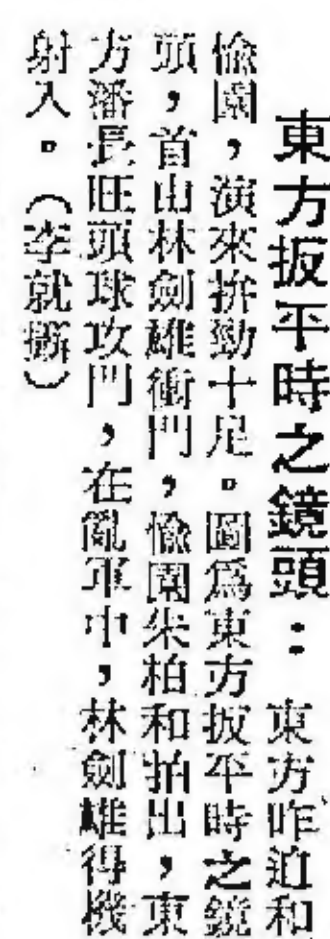 東方扳平時之鏡頭：東方昨迫和
愉園，演來拚勁十足。圖為東方扳平時之鏡
頭，首由林劍雄衝門，愉園朱柏和拍出，東
方潘長旺頭球攻門，在亂軍中，林劍雄得機
射入。（李就攝）